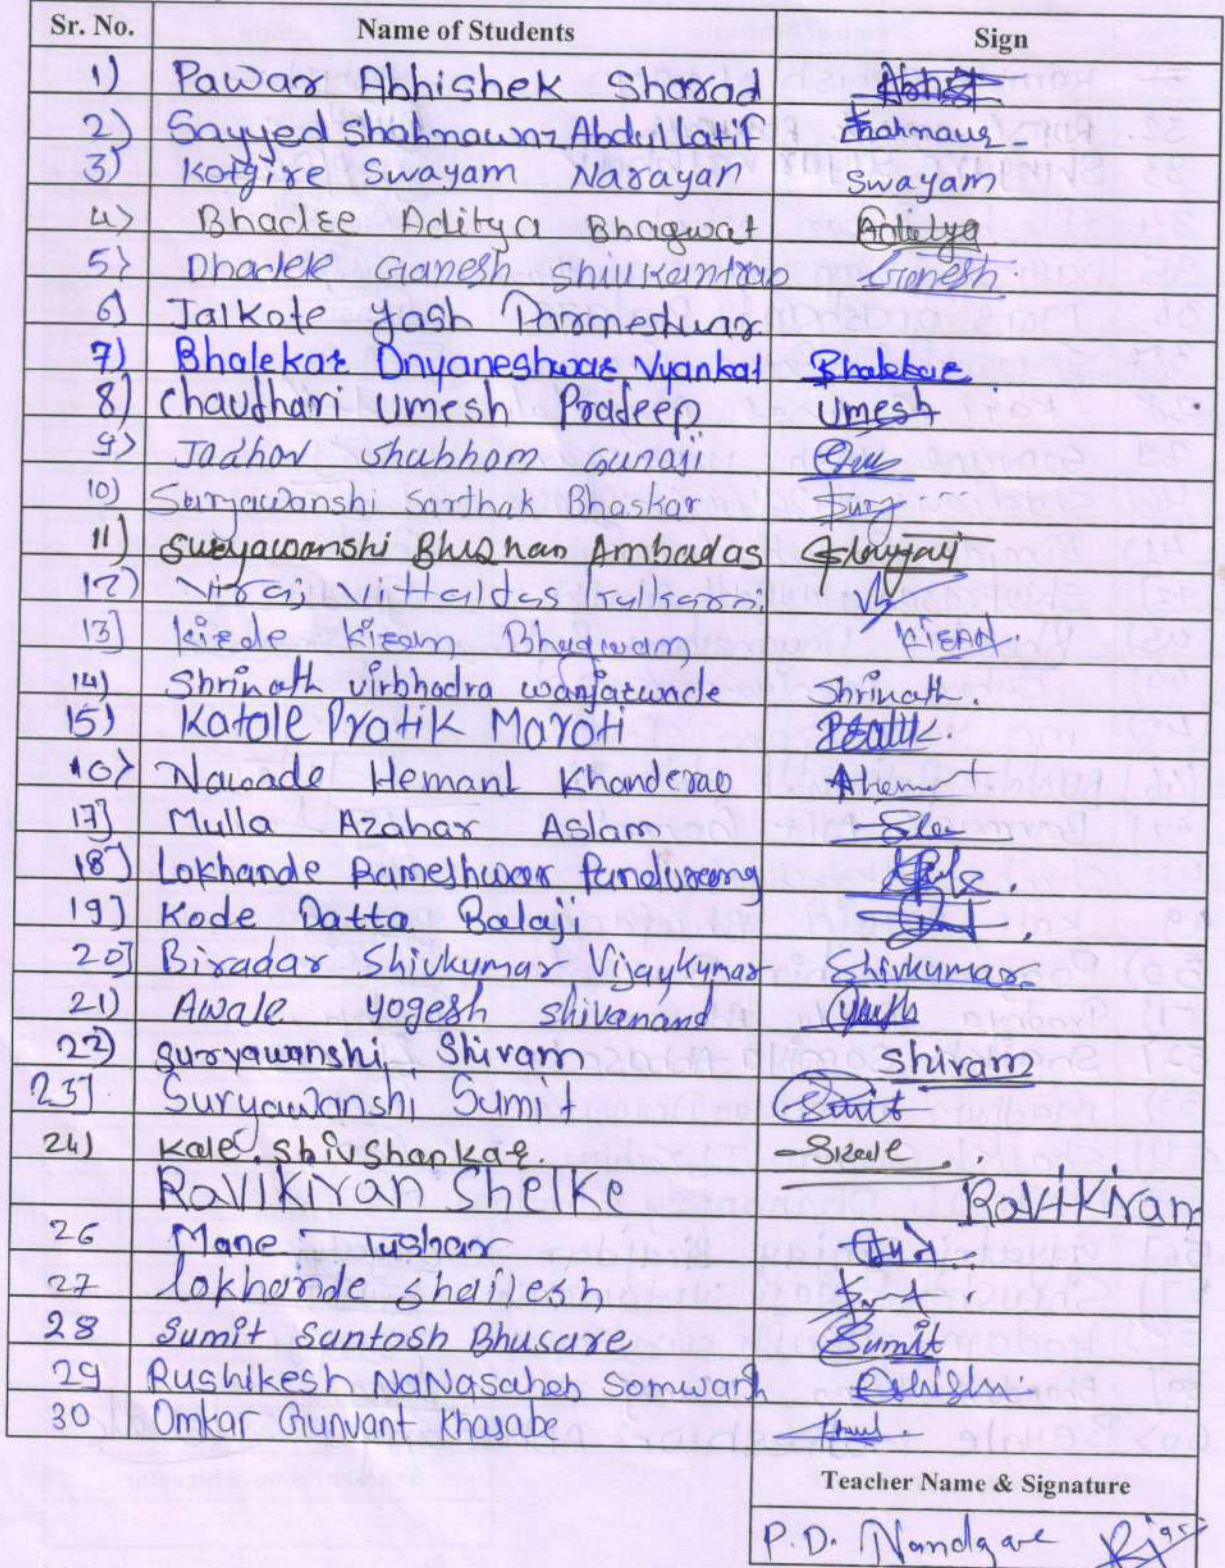 Sr. No. Name of Students Sign
1) Pawar Abhishek Sharad
2) Sayyed Shahnawaz Abdul Latif
3) Kotgire Swayam Narayan Swayam
4) Bhadse Aditya Bhagwat Aditya
5) Dhadek Ganesh Shivkantrao Ganesh
6) Jalkote Yash Parmeshwar
7) Bhalekar Dnyaneshwar Vyankat Bhalekar
8) Chaudhari Umesh Pradeep Umesh
9) Jadhav Shubham Gunaji
10) Suryawanshi Sarthak Bhaskar
11) Suryawanshi Bhushan Ambadas
12) Viraj Vitthaldas Kulkarni
13] Kirde Kiran Bhagwan Kiran.
14) Shrinath Virbhadra Wanjarwade Shrinath.
15) Katole Pratik Maroti Pratik.
10) Nawade Hemant Khanderao
17] Mulla Azahar Aslam
18) Lokhande Rameshwar Pandurang
19] Kode Datta Balaji
20] Biradar Shivkumar Vijaykumar Shivkumar
21) Awale Yogesh Shivanand
22) Suryawanshi Shivam Shivam
23] Suryawanshi Sumit Sumit
24) Kale. Shivshankar.
Ravikiran Shelke Ravikiran
26 Mane Tushar
27 Lokhande Shailesh
28 Sumit Santosh Bhusare Sumit
29 Rushikesh NaNasaheb Somwarsh
30 Omkar Gunvant Khasabe
Teacher Name & Signature
P.D. Nandgave